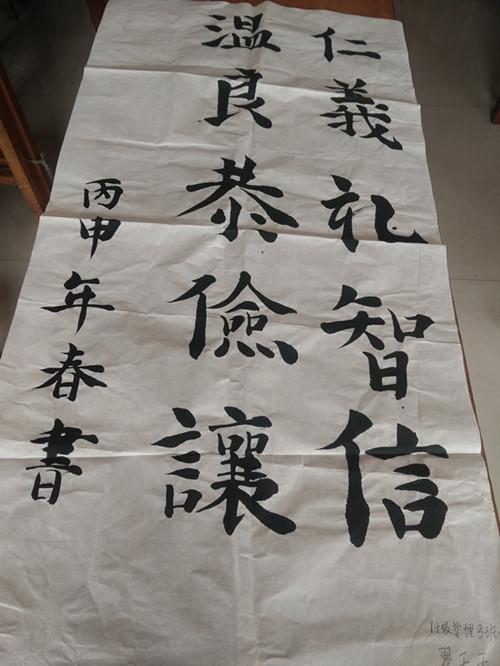 仁義礼智信
温良恭儉讓
丙申年春書